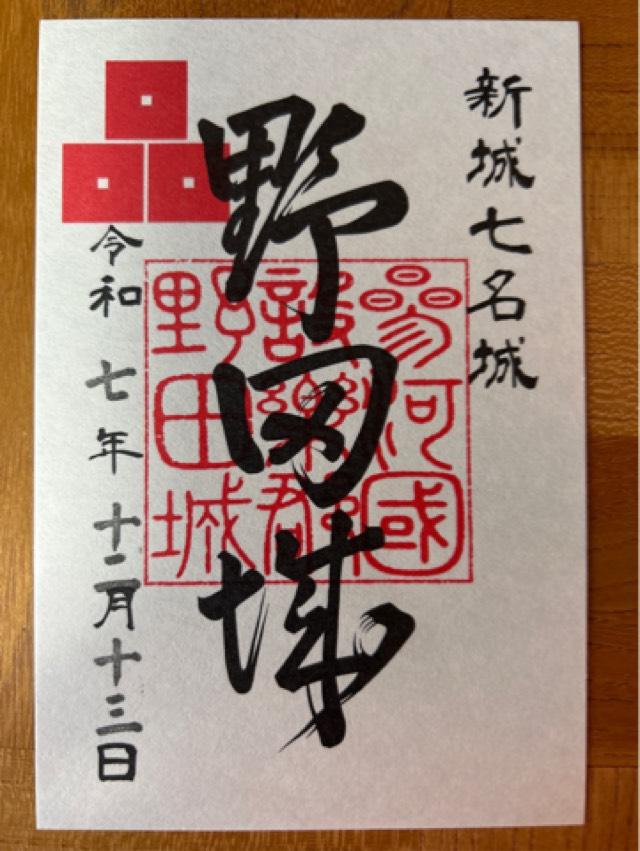 新城七名城
野田城
参河國
設楽郡
野田城
令和 七年 十二月十三日